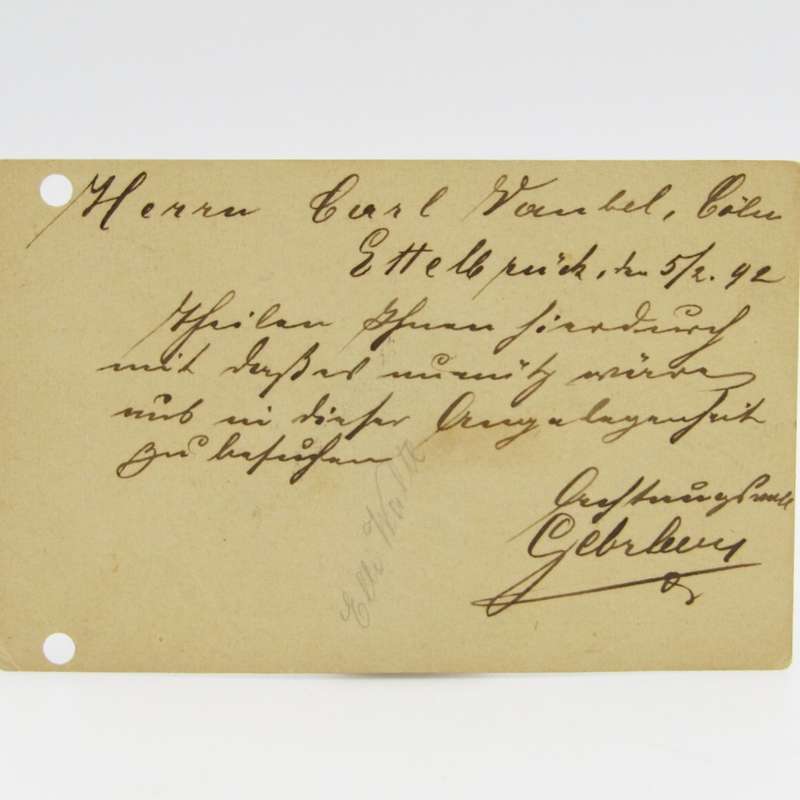 Herrn Carl Vaubel, Cöln
Ettelbrück, den 5/2. 92
Theilen Ihnen hierdurch
mit daß es unnütz wäre
uns in dieser Angelegenheit
zu besuchen
Achtungsvoll
Gebr Levy